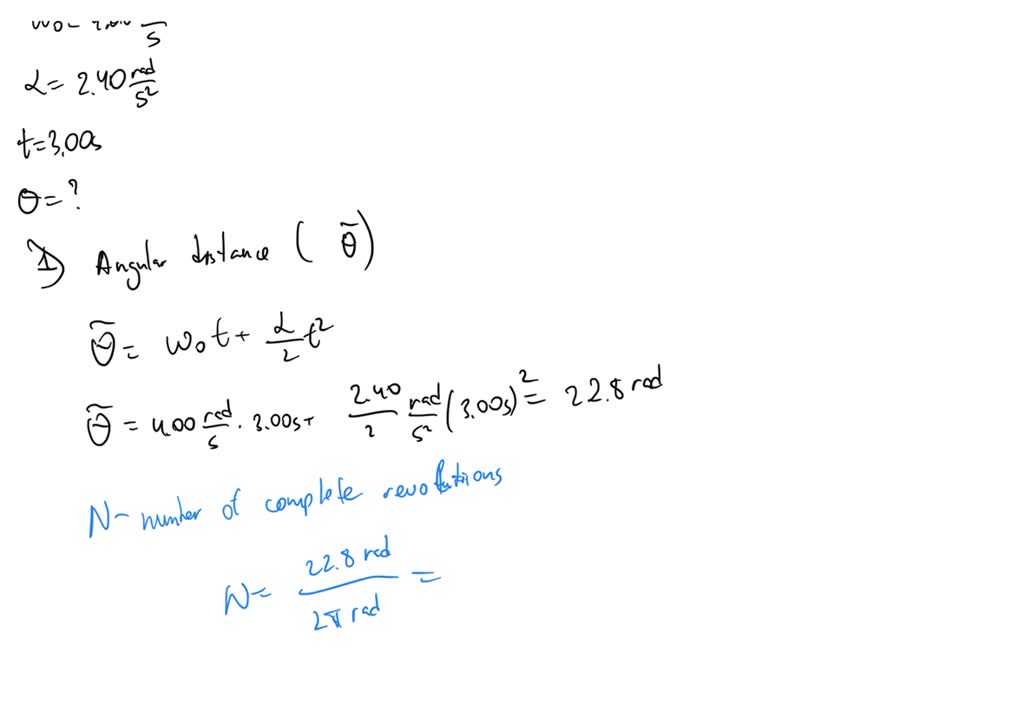 s
α = 2.40 rad/s²
t = 3.00s
θ = ?
1) Angular distance ( θ̃ )
θ̃ = ω₀t + α/2 t²
θ̃ = 4.00 rad/s · 3.00s + 2.40/2 rad/s² (3.00s)² = 22.8 rad
N - number of complete revolutions
N = 22.8 rad / 2π rad =